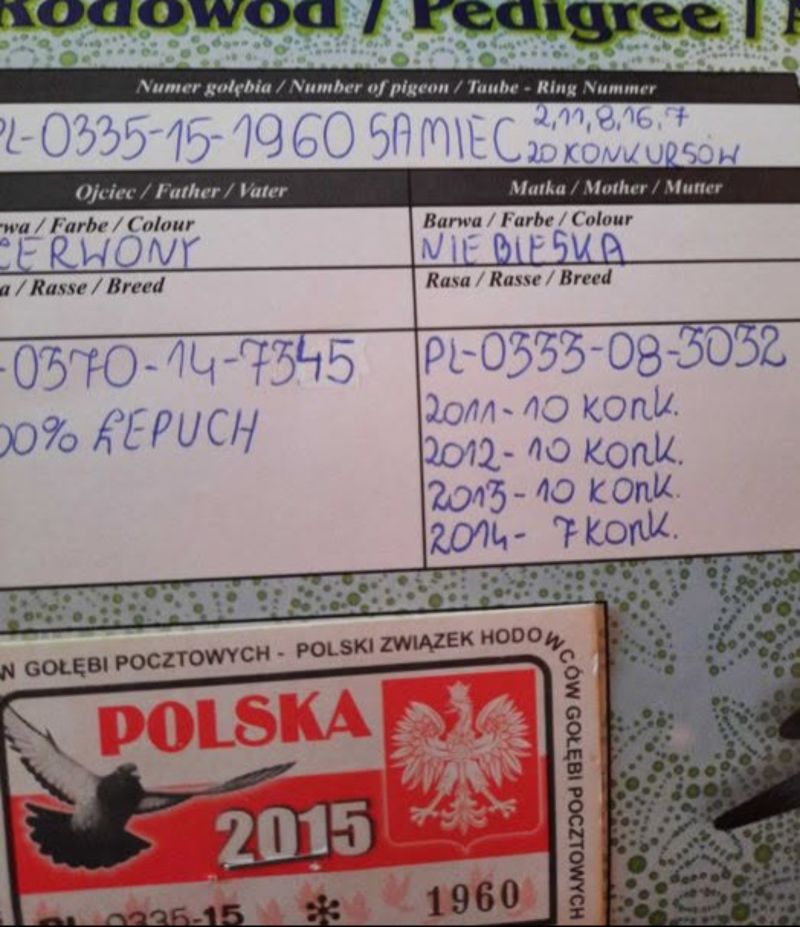 Rodowód / Pedigree | A
Numer gołębia / Number of pigeon / Taube - Ring Nummer
PL-0335-15-1960 SAMIEC 2,11,8,16,7
20 KONKURSÓW
Ojciec / Father / Vater
Matka / Mother / Mutter
rwa / Farbe / Colour
CZERWONY
Barwa / Farbe / Colour
NIEBIESKA
a / Rasse / Breed
Rasa / Rasse / Breed
-0370-14-7345
00% ŁEPUCH
PL-0333-08-3032
2011-10 KONK.
2012-10 KONK.
2013-10 KONK.
2014- 7 KONK.
W GOŁĘBI POCZTOWYCH - POLSKI ZWIĄZEK HODOWCÓW GOŁĘBI POCZTOWYCH
POLSKA
2015
PL 0335-15 * 1960